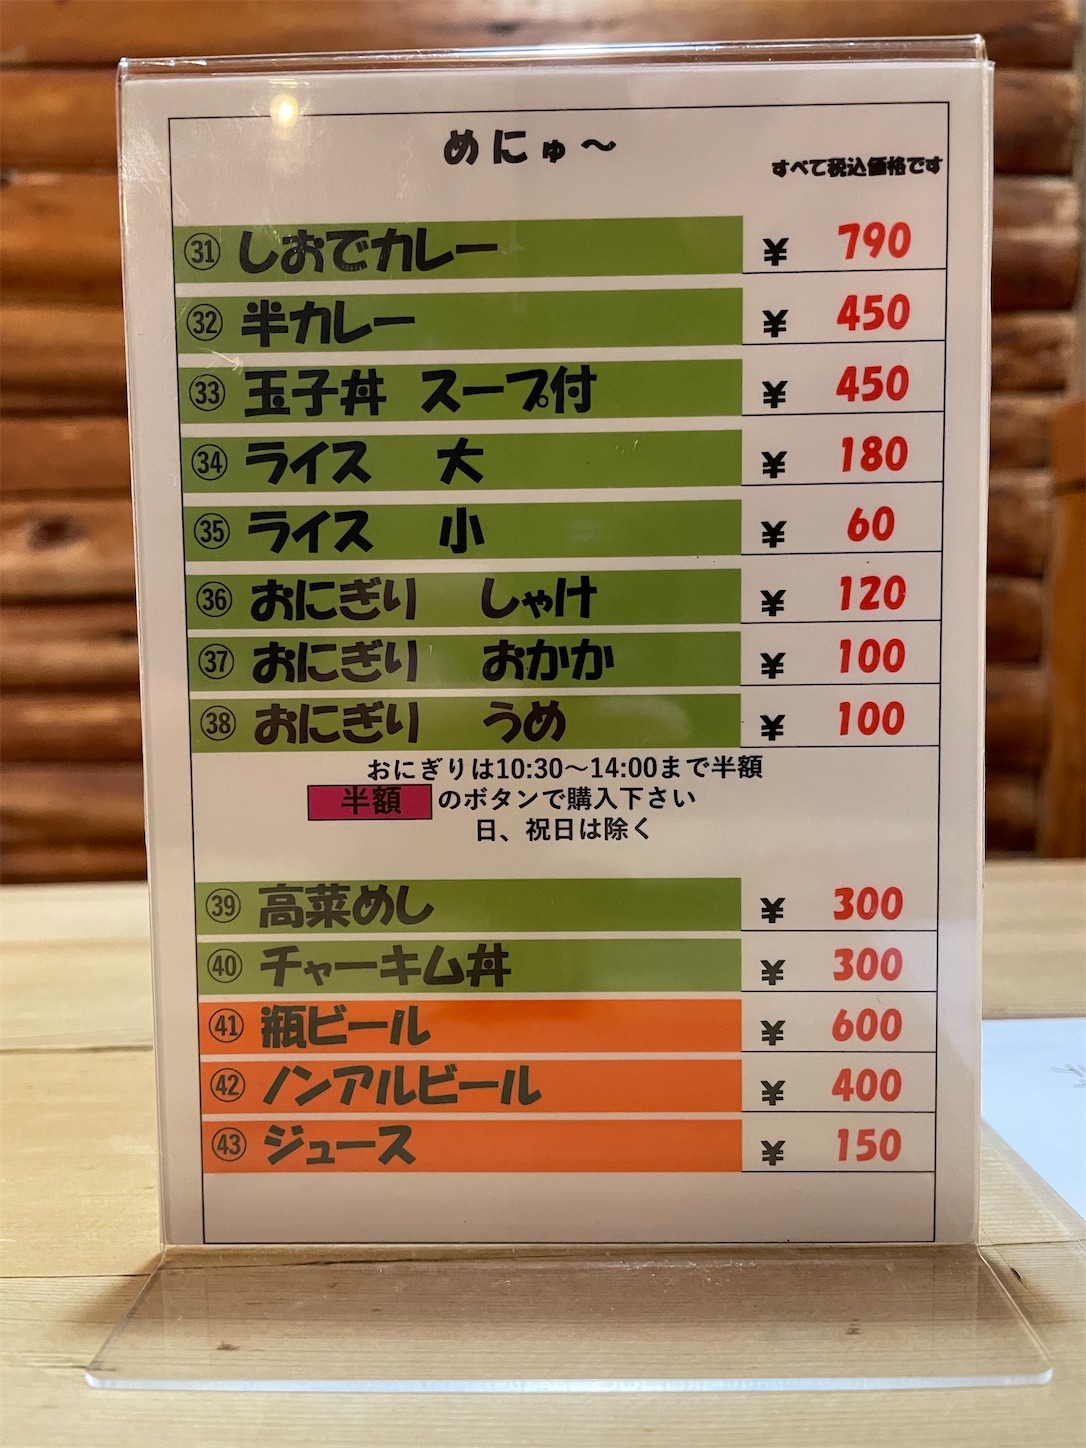 めにゅ～
すべて税込価格です
㉛ しおでカレー ¥ 790
㉜ 半カレー ¥ 450
㉝ 玉子丼 スープ付 ¥ 450
㉞ ライス 大 ¥ 180
㉟ ライス 小 ¥ 60
㊱ おにぎり しゃけ ¥ 120
㊲ おにぎり おかか ¥ 100
㊳ おにぎり うめ ¥ 100
おにぎりは10:30～14:00まで半額
半額 のボタンで購入下さい
日、祝日は除く
㊴ 高菜めし ¥ 300
㊵ チャーキム丼 ¥ 300
㊶ 瓶ビール ¥ 600
㊷ ノンアルビール ¥ 400
㊸ ジュース ¥ 150